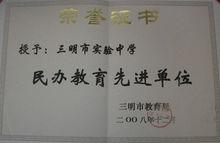 荣誉证书
授予：三明市实验中学
民办教育先进单位
三明市教育局
二00八年十二月